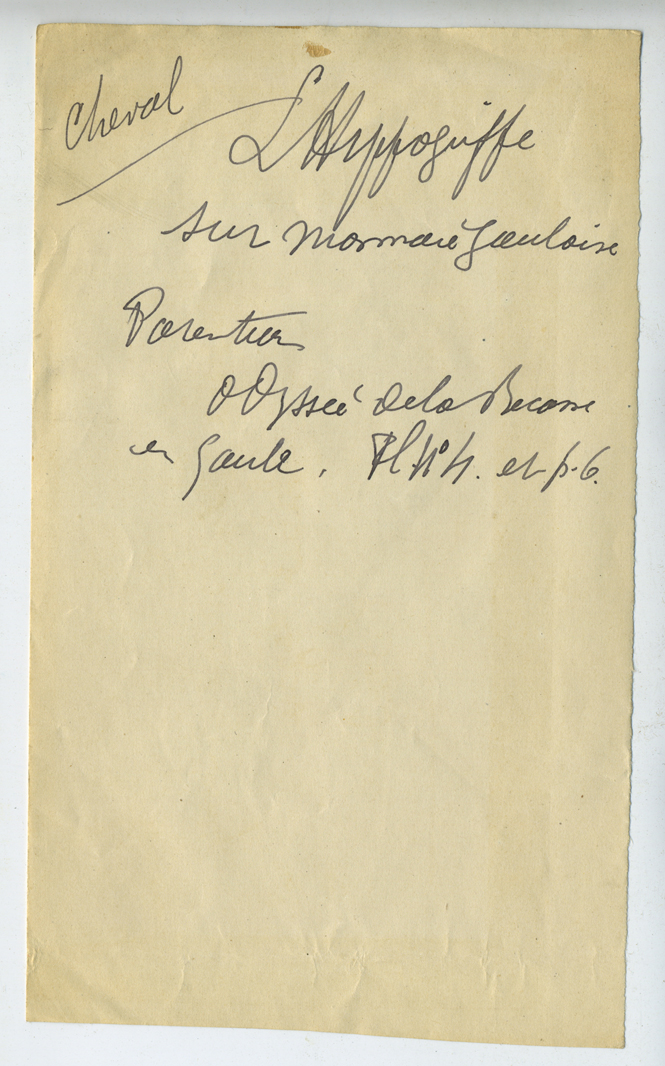 Cheval
L'Hyppogriffe
sur monnaie gauloise
Parentier
Odyssée de la Becasse
en Gaule. Pl N°4. et p. 6.